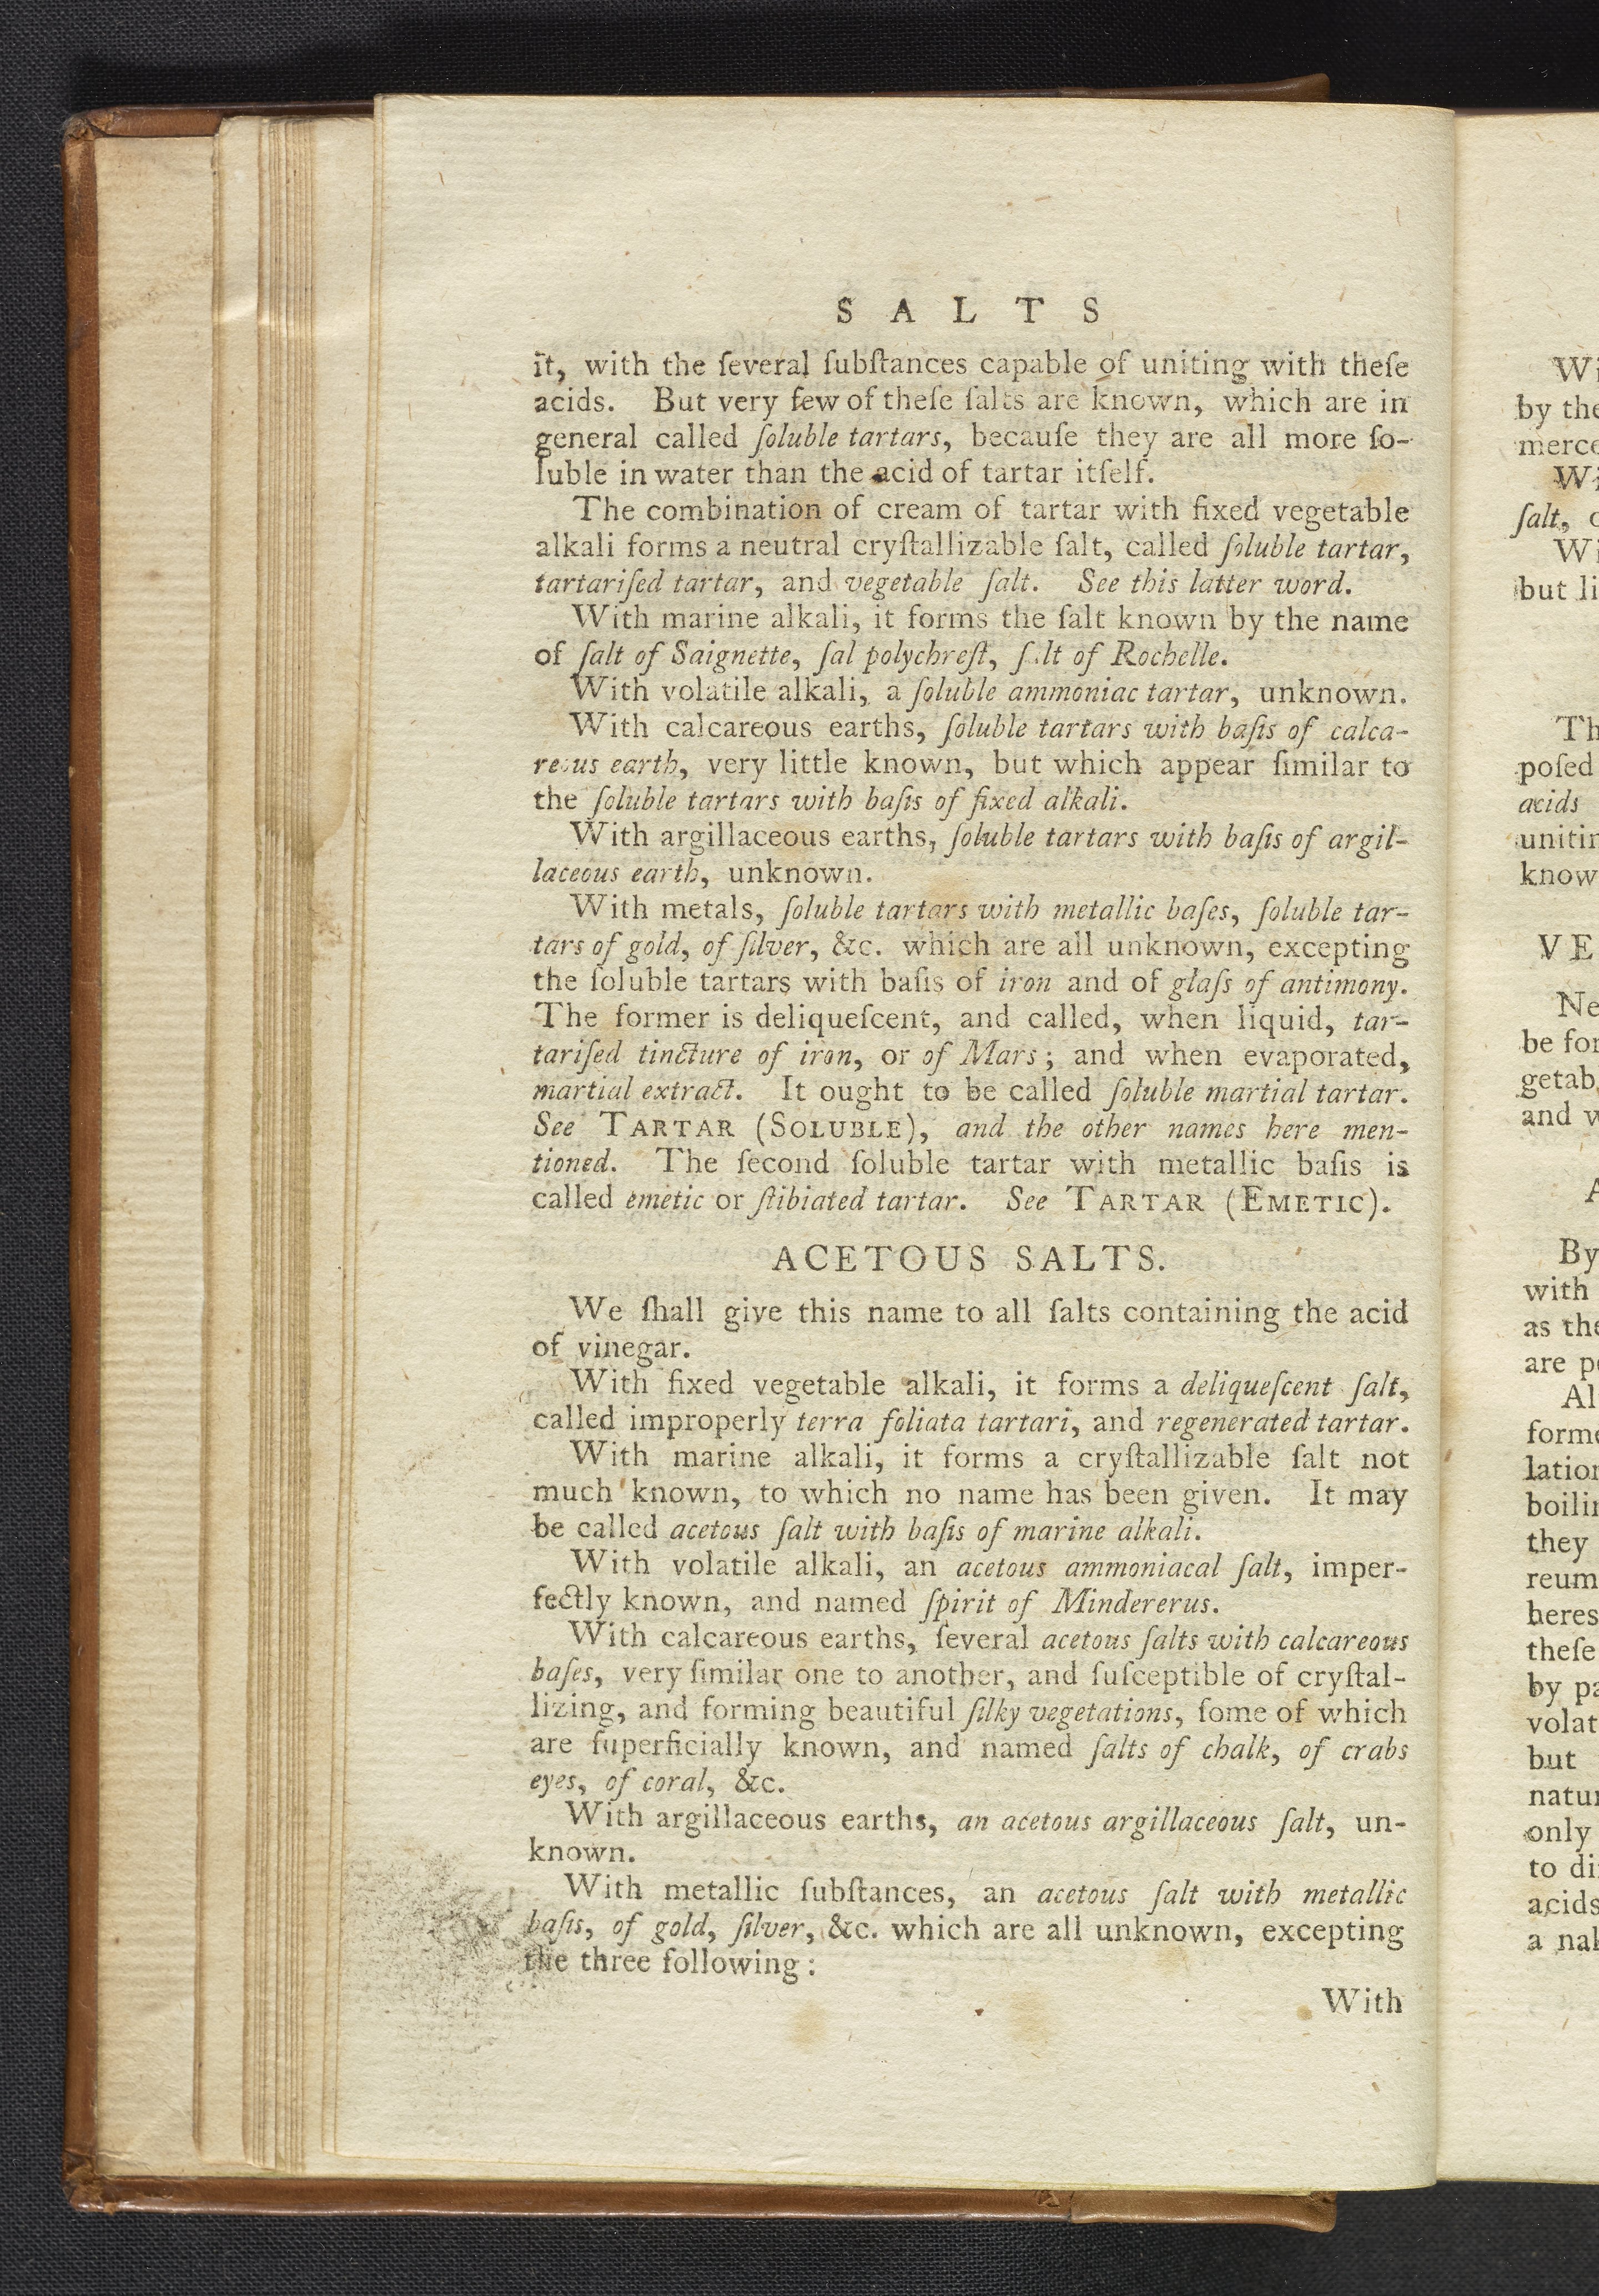 S A L T S
it, with the ſeveral ſubſtances capable of uniting with theſe
acids. But very few of theſe ſalts are known, which are in
general called ſoluble tartars, becauſe they are all more ſo-
luble in water than the acid of tartar itſelf.
The combination of cream of tartar with fixed vegetable
alkali forms a neutral cryſtallizable ſalt, called ſoluble tartar,
tartariſed tartar, and vegetable ſalt. See this latter word.
With marine alkali, it forms the ſalt known by the name
of ſalt of Saignette, ſal polychreſt, ſalt of Rochelle.
With volatile alkali, a ſoluble ammoniac tartar, unknown.
With calcareous earths, ſoluble tartars with baſis of calca-
reous earth, very little known, but which appear ſimilar to
the ſoluble tartars with baſis of fixed alkali.
With argillaceous earths, ſoluble tartars with baſis of argil-
laceous earth, unknown.
With metals, ſoluble tartars with metallic baſes, ſoluble tar-
tars of gold, of ſilver, &c. which are all unknown, excepting
the ſoluble tartars with baſis of iron and of glaſs of antimony.
The former is deliqueſcent, and called, when liquid, tar-
tariſed tincture of iron, or of Mars; and when evaporated,
martial extract. It ought to be called ſoluble martial tartar.
See TARTAR (SOLUBLE), and the other names here men-
tioned. The ſecond ſoluble tartar with metallic baſis is
called emetic or ſtibiated tartar. See TARTAR (EMETIC).
ACETOUS SALTS.
We ſhall give this name to all ſalts containing the acid
of vinegar.
With fixed vegetable alkali, it forms a deliqueſcent ſalt,
called improperly terra foliata tartari, and regenerated tartar.
With marine alkali, it forms a cryſtallizable ſalt not
much known, to which no name has been given. It may
be called acetous ſalt with baſis of marine alkali.
With volatile alkali, an acetous ammoniacal ſalt, imper-
fectly known, and named ſpirit of Mindererus.
With calcareous earths, ſeveral acetous ſalts with calcareous
baſes, very ſimilar one to another, and ſuſceptible of cryſtal-
lizing, and forming beautiful ſilky vegetations, ſome of which
are ſuperficially known, and named ſalts of chalk, of crabs
eyes, of coral, &c.
With argillaceous earths, an acetous argillaceous ſalt, un-
known.
With metallic ſubſtances, an acetous ſalt with metallic
baſis, of gold, ſilver, &c. which are all unknown, excepting
the three following:
With
by the
ſalt,
but
poſed
acids
know
be
and
with
as
are
boili
they
theſe
by
but
only
to
acids
a